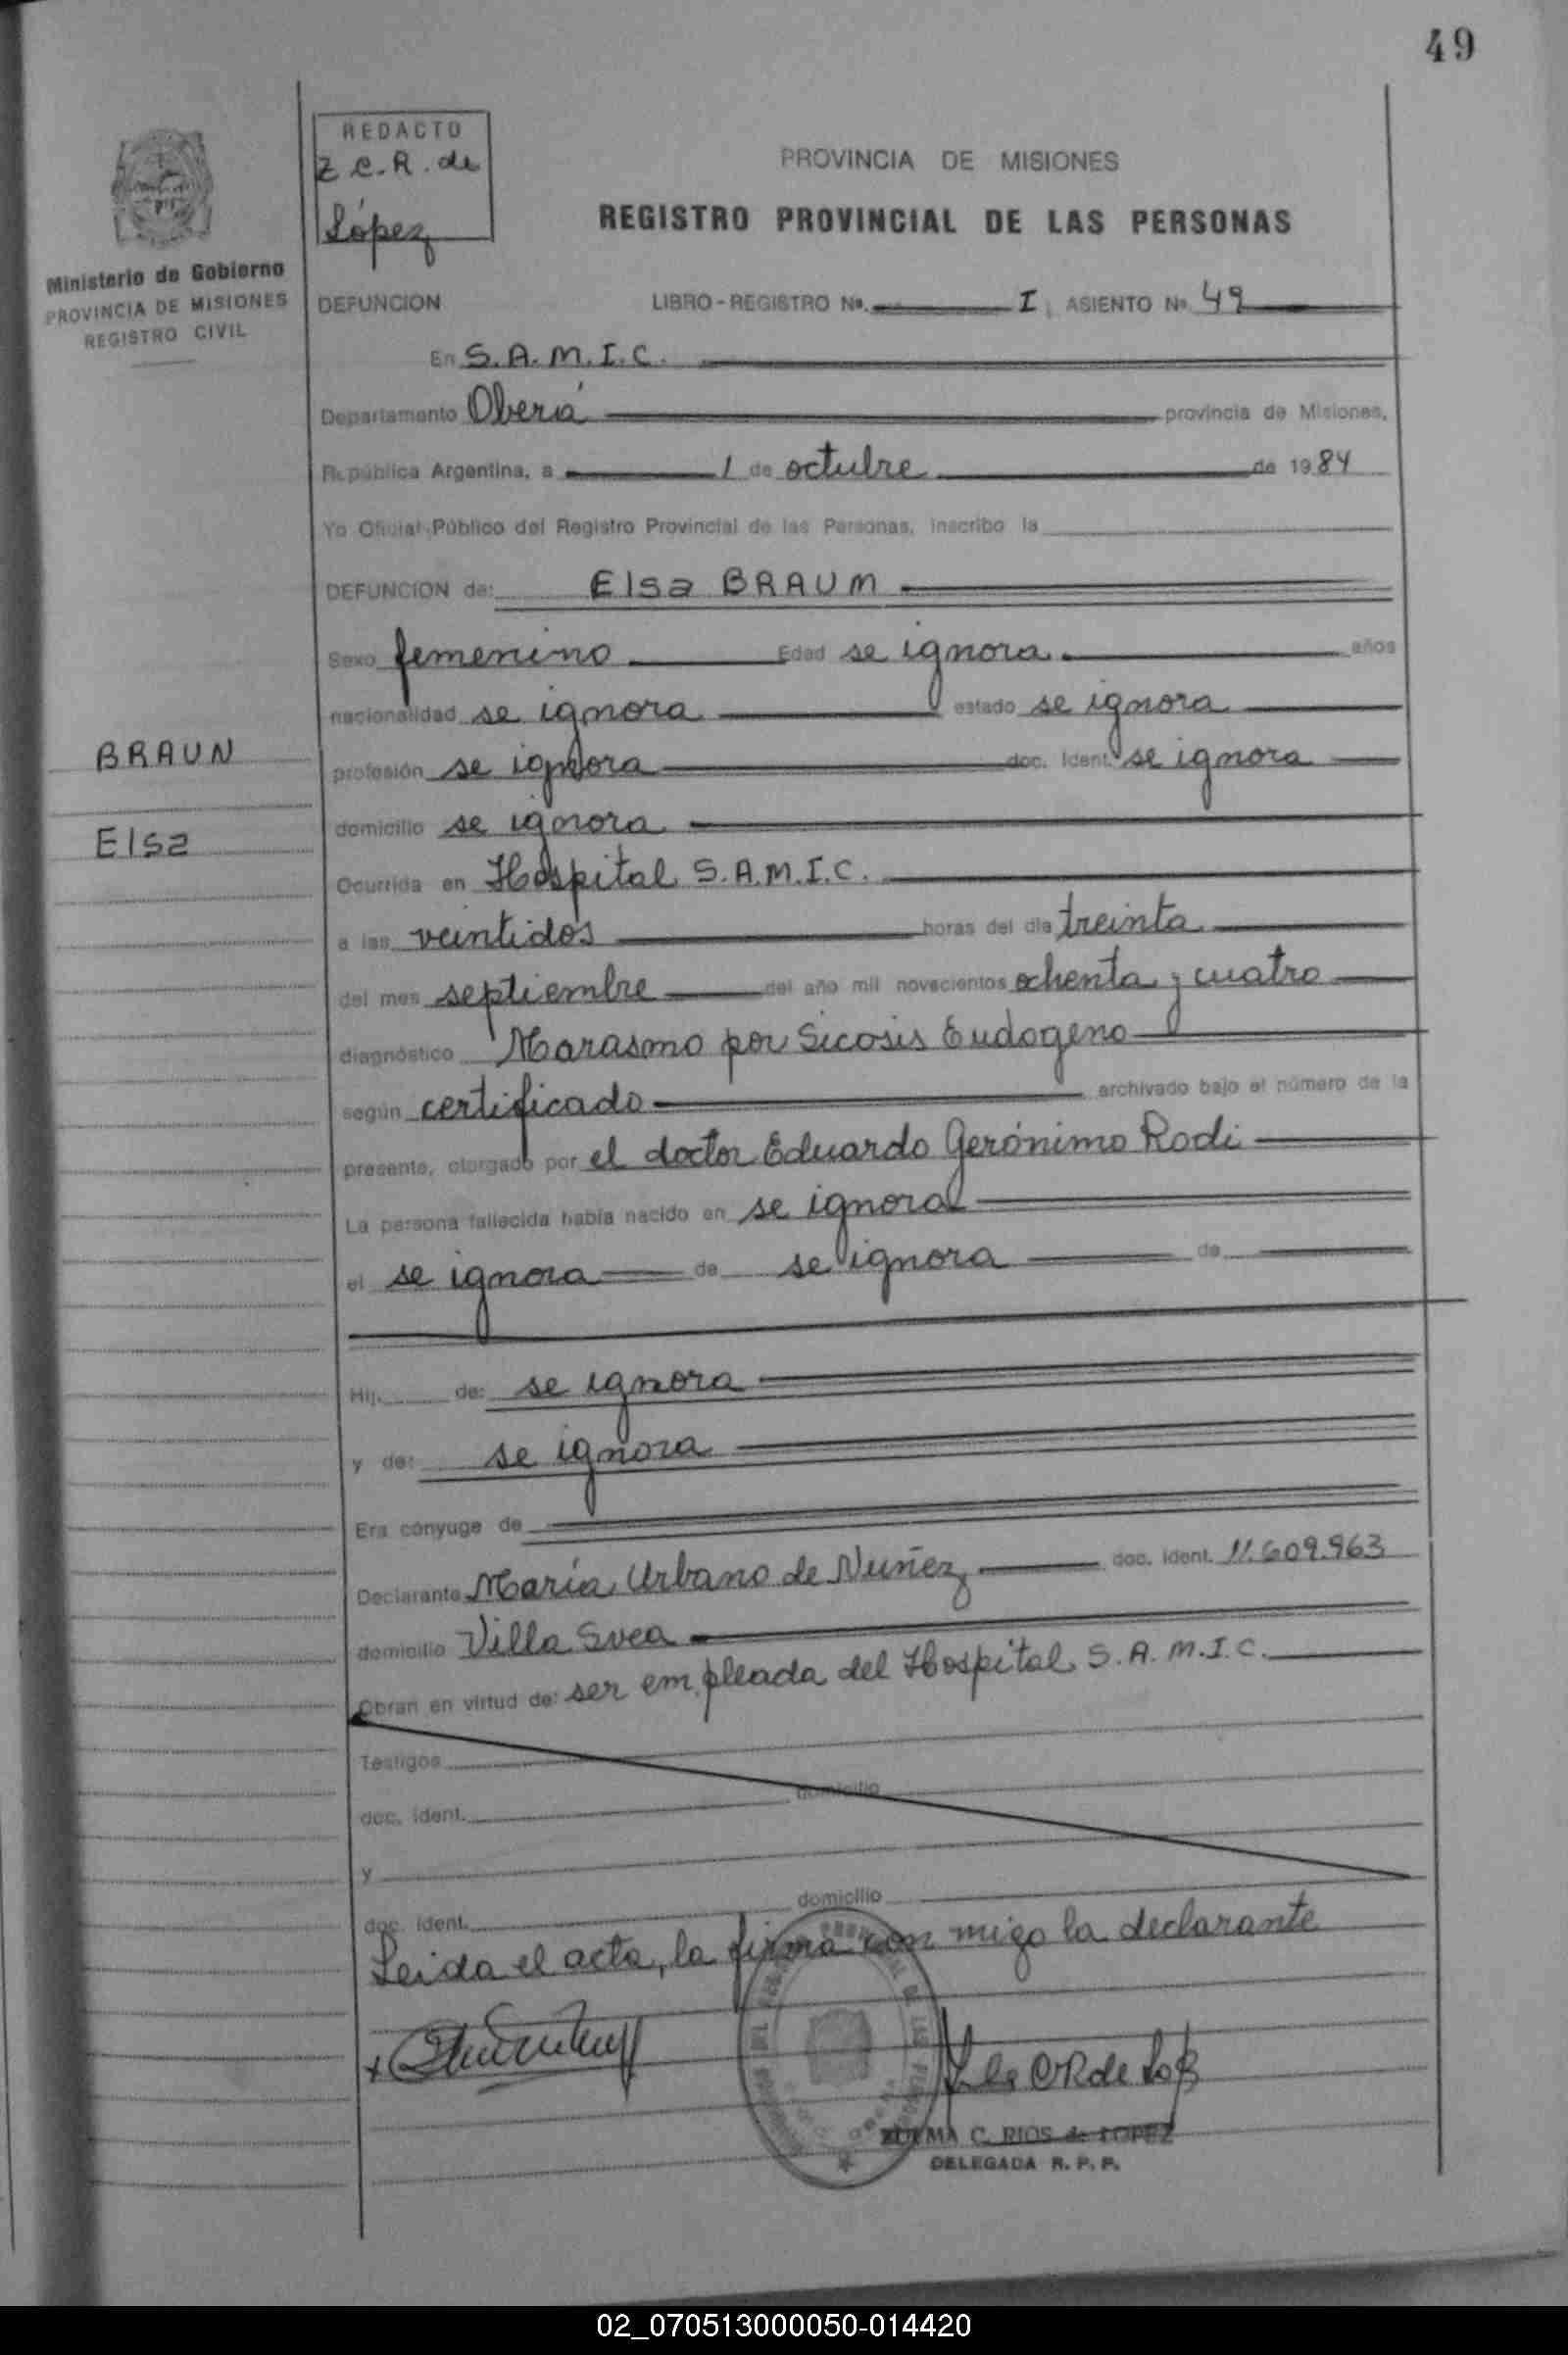 49
REDACTO
Z C.R. de
López
Ministerio de Gobierno
PROVINCIA DE MISIONES
REGISTRO CIVIL
PROVINCIA DE MISIONES
REGISTRO PROVINCIAL DE LAS PERSONAS
DEFUNCION LIBRO-REGISTRO No. I, ASIENTO No. 49
En S.A.M.I.C.
Departamento Oberá provincia de Misiones,
República Argentina, a 1 de octubre de 1984
Yo Oficial Público del Registro Provincial de las Personas, inscribo la
DEFUNCION de: Elsa BRAUM
Sexo femenino Edad se ignora años
nacionalidad se ignora estado se ignora
BRAUN
profesión se ignora doc. Ident. se ignora
domicilio se ignora
Elsa
Ocurrida en Hospital S.A.M.I.C.
a las veintidós horas del día treinta
del mes septiembre del año mil novecientos ochenta y cuatro
diagnóstico Marasmo por Sicosis Endogeno
según certificado archivado bajo el número de la
presente, otorgado por el doctor Eduardo Gerónimo Rodi
La persona fallecida había nacido en se ignora
el se ignora de se ignora de
Hij. de: se ignora
y de: se ignora
Era cónyuge de
Declarante María Urbano de Nuñez doc. ident. 11.609.963
domicilio Villa Svea
Obran en virtud de: ser empleada del Hospital S.A.M.I.C.
Testigos
domicilio
doc. ident.
y
domicilio
doc. ident.
Leida el acta, la firma con migo la declarante
ZULMA C. RIOS de LOPEZ
DELEGADA R. P. P.
02_070513000050-014420